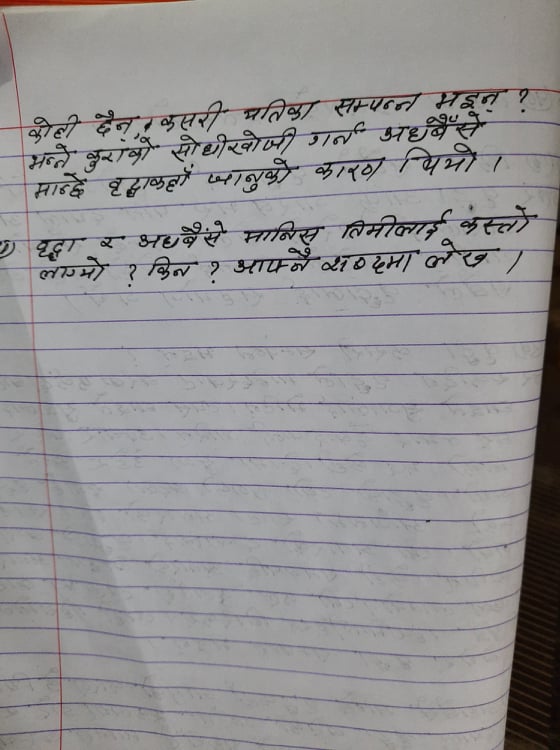 कोही छैन्, कसरी यतिका सम्पन्न भइन् ?
भन्ने कुराको सोधीखोजी गर्न अधबैँसे
मान्छे वृद्धाकहाँ जानुको कारण थियो ।
वृद्धा र अधबैंसे मानिस तिमीलाई कस्तो
लाग्यो ? किन ? आफ्नै शब्दमा लेख ।